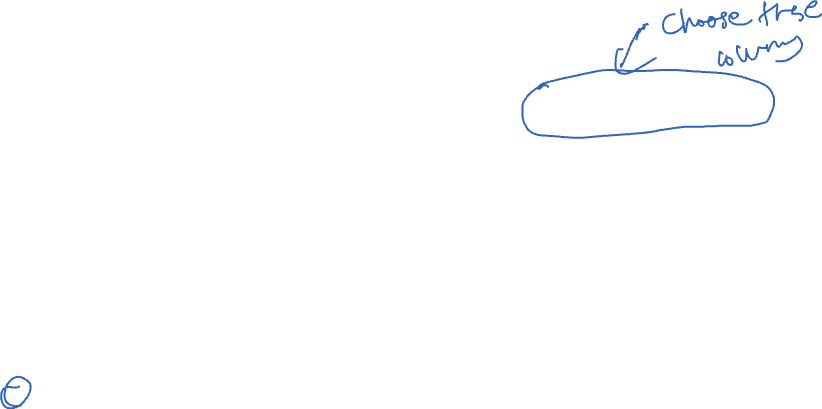 Choose these
columns